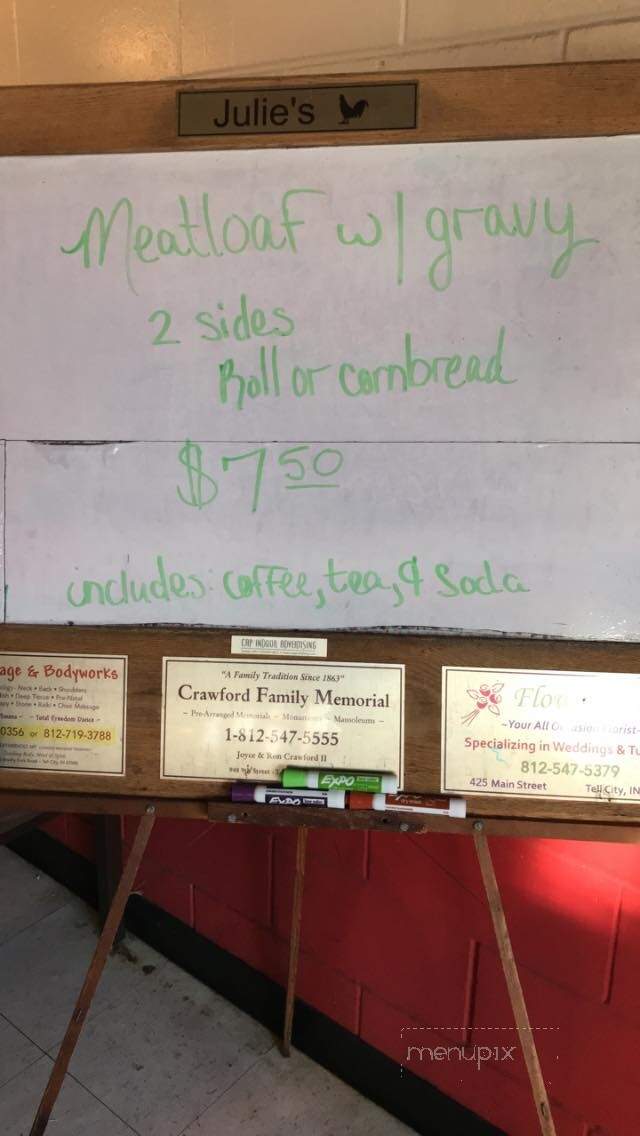 Julie's
Meatloaf w/ gravy
2 sides
Roll or cornbread
$7 50
includes: coffee, tea, & Soda
CAP INDOOR ADVERTISING
age & Bodyworks
Neck • Back • Shoulders
Deep Tissue • Pre-Natal
Stone • Reiki • Chair Massage
Total Freedom Dance
0356 or 812-719-3788
"A Family Tradition Since 1863"
Crawford Family Memorial
~ Pre-Arranged Memorials ~ Monuments ~ Mausoleums ~
1-812-547-5555
Joyce & Ron Crawford II
Street
Flo
~Your All Occasion Florist~
Specializing in Weddings & Tu
812-547-5379
425 Main Street Tell City, IN
EXPO
EXPO
menupix